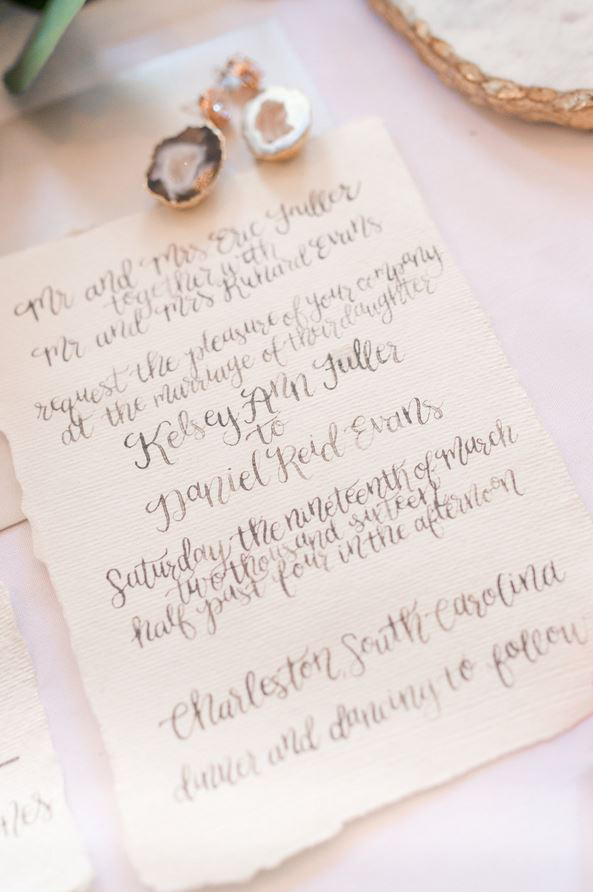 Mr and Mrs Eric Fuller
together with
Mr and Mrs Richard Evans
request the pleasure of your company
at the marriage of their daughter
Kelsey Ann Fuller
to
Daniel Reid Evans
Saturday the nineteenth of March
two thousand sixteen
half past four in the afternoon
Charleston, South Carolina
dinner and dancing to follow